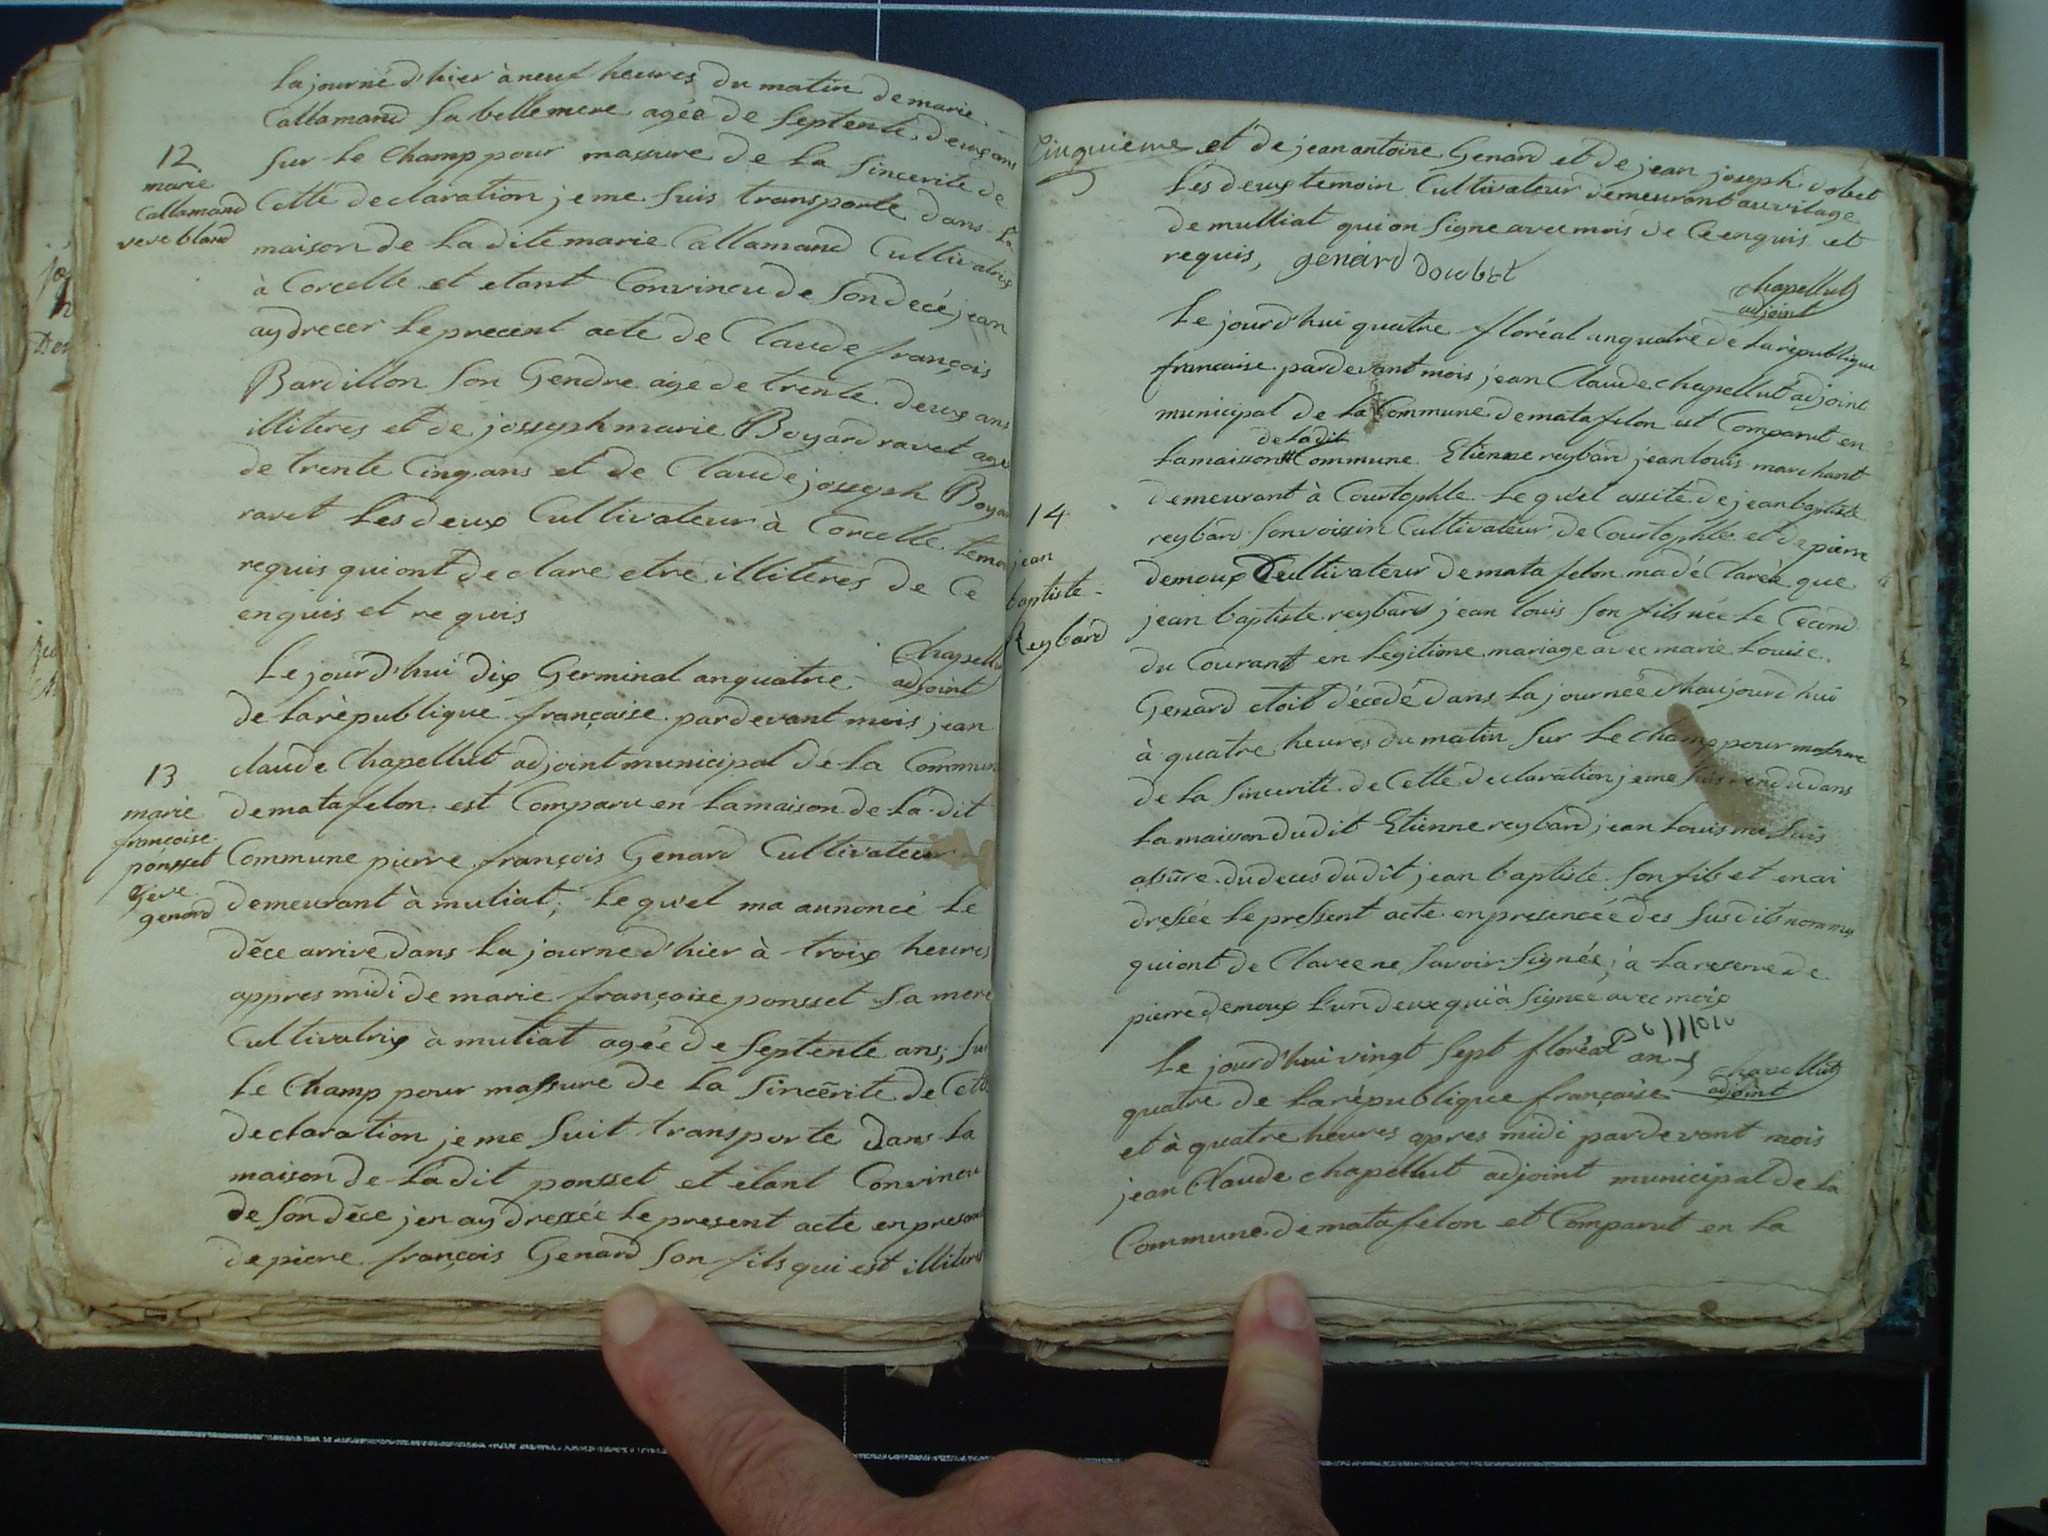 la journé d'hier à neuf heures du matin de marie
Callamand sa belle mere agée de septente deux ans
sur le champ pour massure de la sincerite de
12
marie
Callamand
veve bland
Cette declaration je me suis transporte dans la
maison de la dite marie Callamand Cultivatrix
à Corcelle et etant Convincu de son decé jean
ay drecer le precent acte de Claude françois
Bardillon son Gendre age de trente deux ans
illiteres et de josseph marie Boyard ravet age
de trente Cinq ans et de Claude josseph Boyar
ravet les deux Cultivateur à Corcelle temoi
requis qui ont declare etre illiteres de Ce
enquis et requis
Chapellu
adjoint
Le jourd'hui dix Germinal an quatre
de la rèpublique françaisse pardevant mois jean
claude Chapellut adjoint municipal de la Commun
13
marie
françoise
ponsset
veve
genard
de matafelon est Comparu en la maison de la dit
Commune pierre françois Genard Cultivateur
demeurant à muliat, le qu'el ma annoncé le
dèce arrive dans la journe d'hier à troix heures
appres midi de marie françoise ponsset sa mere
Cultivatrix à muliat agée de septente ans, sur
le Champ pour massure de la sincérite de Cett
declaration je me suit transporte dans la
maison de la dit ponsset et étant Convincu
de son dèce j'en ay dressée le present acte en presen
de piere françois Genard son fils qui est illiteres
Cinquieme et de jean antoine Genard et de jean joseph dobet
les deux temoin Cultivateur demeurant au vilage
de mulliat qui on signe avec mois de Ce enquis et
requis, genard doubet
chapellut
adjoint
Le jourd'hui quatre floréal an quatre de la rèpublique
francaise pardevant mois jean Claude chapellut adjoint
municipal de la Commune de matafelon est Comparut en
de la dit
la maison Commune Etienne reybard jean louis marchant
demeurant à Courtophle le qu'el assite de jean baptiste
14
jean
baptiste
Reybard
reybard son voissin Cultivateur de Courtophle et de pierre
demoux Cultivateur de matafelon ma dé Clarée que
jean baptiste reybard jean louis son fils née le Cecond
du Courant en légitime mariage avec marie Louise
Genard etoit décedé dans la journée d'haujourd'hui
à quatre heures du matin sur le champ pour massure
de la sincerité de Cette declaration je me suis rendu dans
la maison dudit Etienne reybard jean Louis me suis
assûre du deces du dit jean baptiste son fils et en ai
dressée le pressent acte en presencée des susdits nommes
qui ont de Claree ne savoir signée, à la reserve de
pierre demoux l'un deux qui à signée avec moix
Le jourd'hui vingt sept floréal an
chapellut
adjoint
quatre de la république française
et à quatre heures apres midi pardevant mois
jean Claude chapellut adjoint municipal de la
Commune de matafelon et Comparut en la